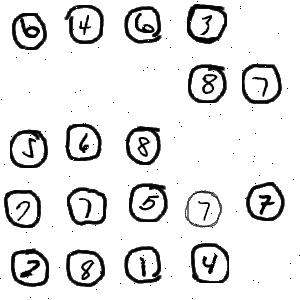 6 4 6 3
8 7
5 6 8
7 7 5 7 7
2 8 1 4